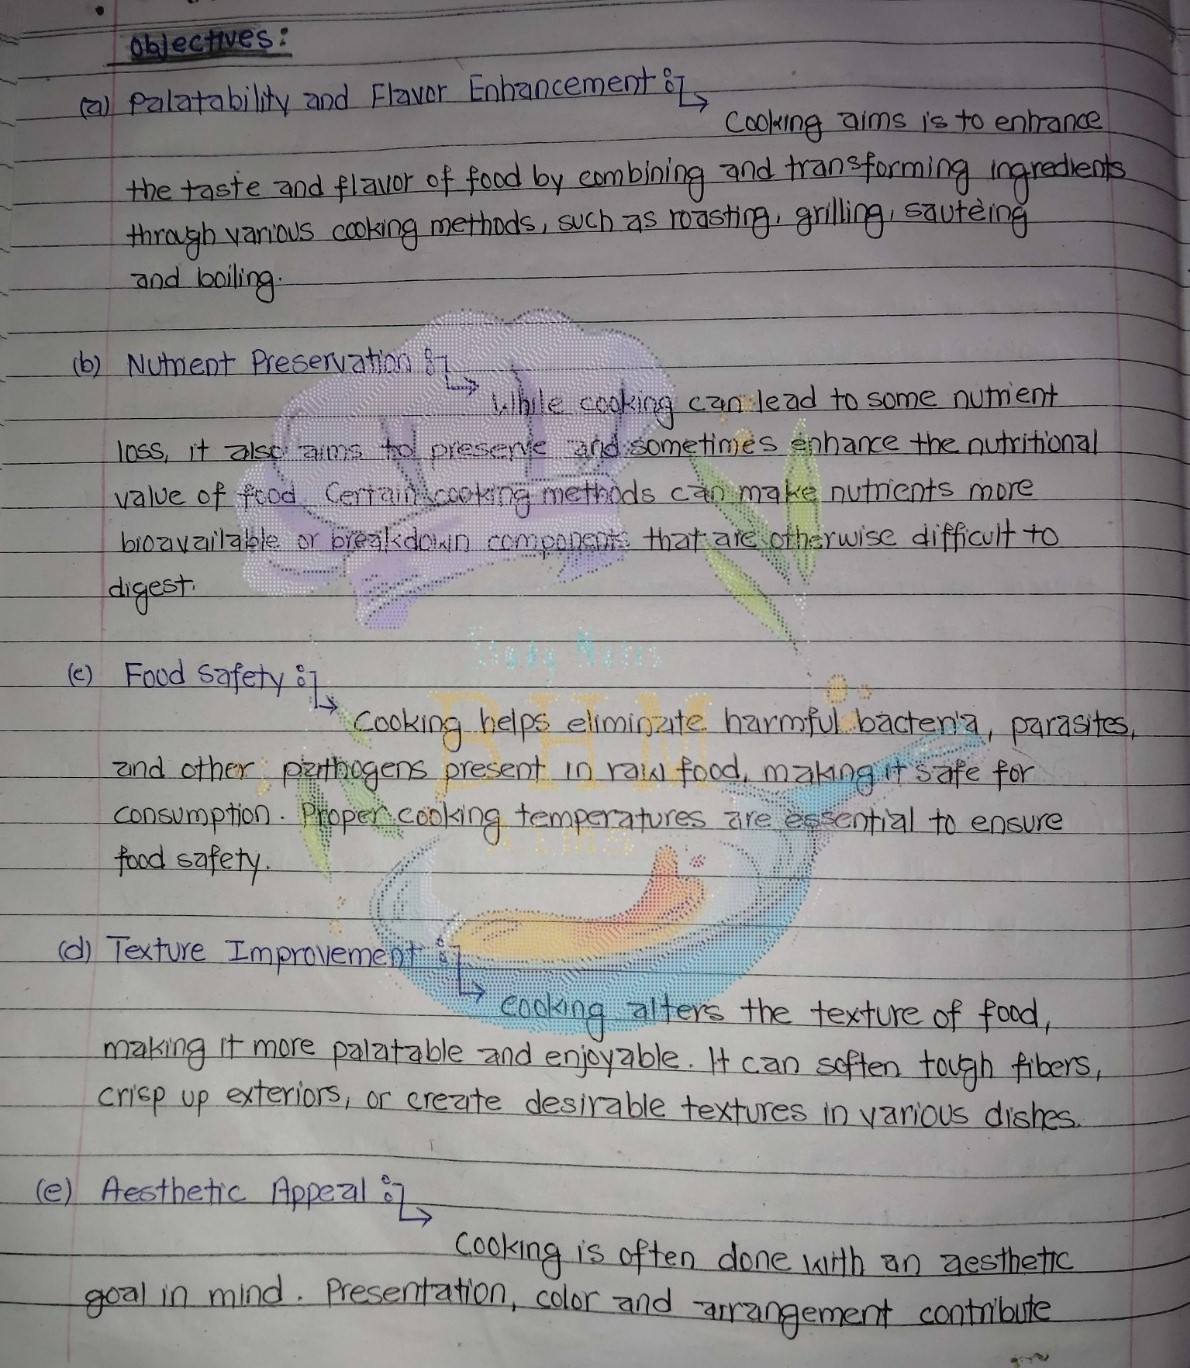 Objectives:
(a) Palatability and Flavor Enhancement :
Cooking aims is to enhance
the taste and flavor of food by combining and transforming ingredients
through various cooking methods, such as roasting, grilling, sautéing
and boiling.
(b) Nutrient Preservation :
While cooking can lead to some nutrient
loss, it also aims to preserve and sometimes enhance the nutritional
value of food. Certain cooking methods can make nutrients more
bioavailable or breakdown components that are otherwise difficult to
digest.
(c) Food Safety :
Study Notes
BHM
Cooking helps eliminate harmful bacteria, parasites,
and other pathogens present in raw food, making it safe for
consumption. Proper cooking temperatures are essential to ensure
food safety.
(d) Texture Improvement :
Cooking alters the texture of food,
making it more palatable and enjoyable. It can soften tough fibers,
crisp up exteriors, or create desirable textures in various dishes.
(e) Aesthetic Appeal :
Cooking is often done with an aesthetic
goal in mind. Presentation, color and arrangement contribute